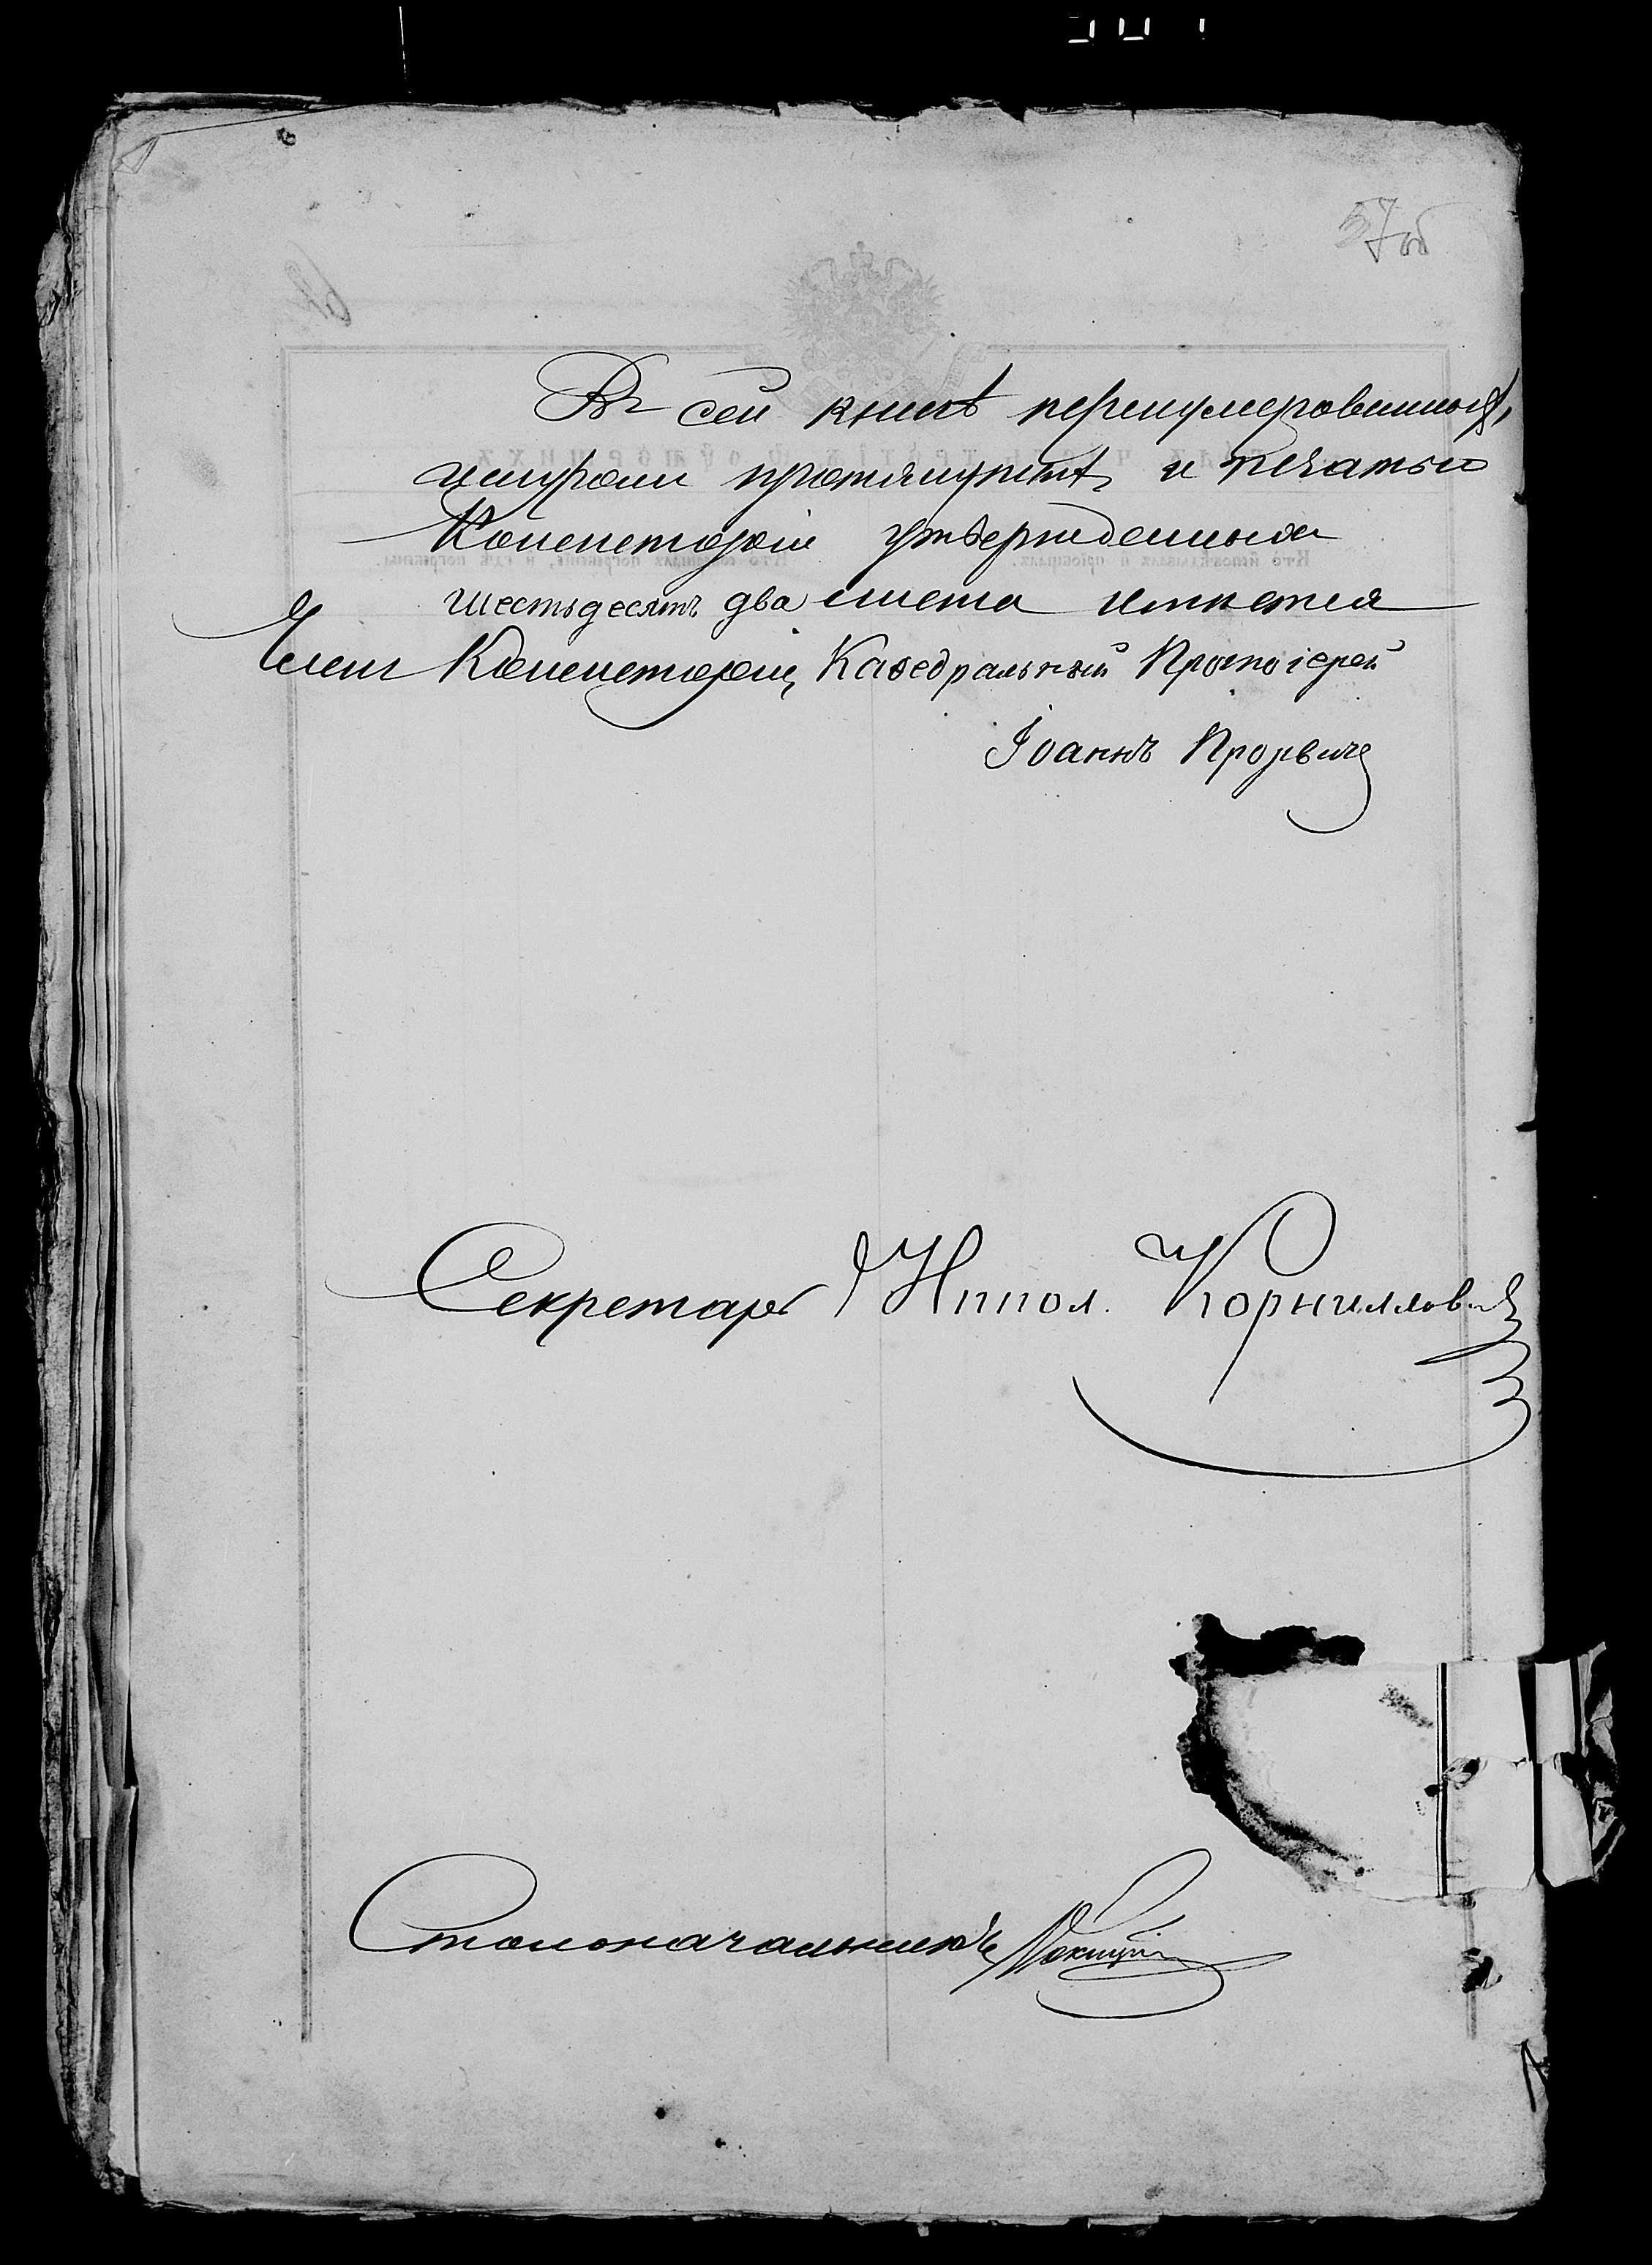 57об
Въ сей книгѣ перенумерованныхъ,
цифрами протянутыхъ и печатью
Консисторіи утвержденныхъ
шестьдесятъ два листа имѣется
Членъ Консисторіи, Каѳедральный Протоіерей
Іоаннъ Прорвичъ
Секретарь Иппол. Корниловичъ
Столоначальникъ